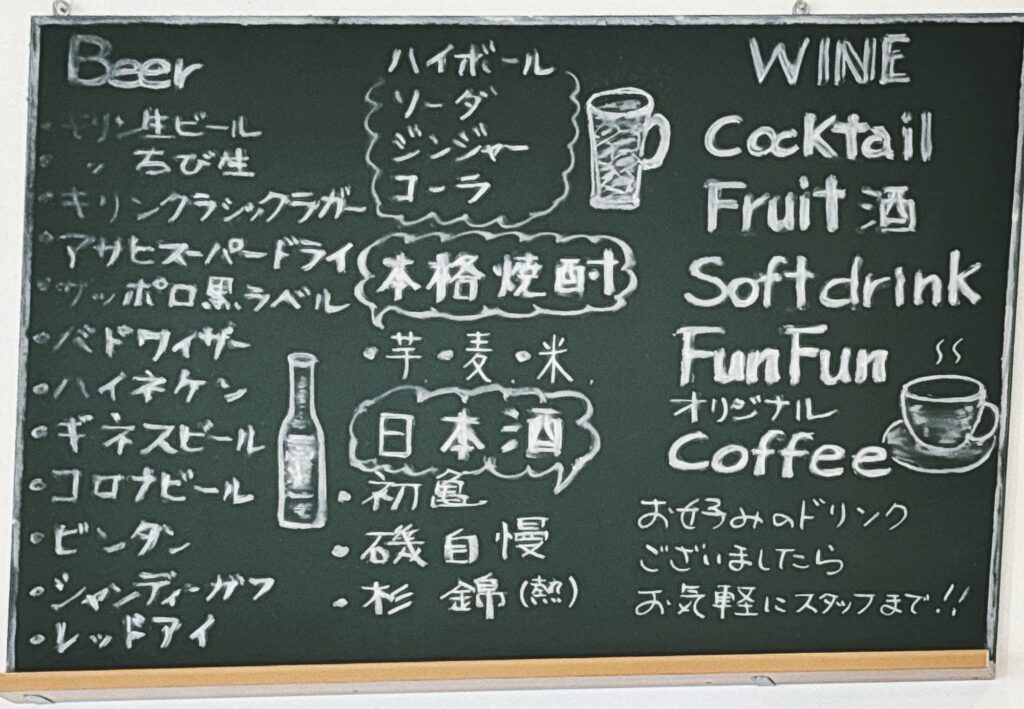 Beer
・キリン生ビール
・ 〃 ちび生
・キリンクラシックラガー
・アサヒスーパードライ
・サッポロ黒ラベル
・バドワイザー
・ハイネケン
・ギネスビール
・コロナビール
・ビンタン
・シャンディーガフ
・レッドアイ
ハイボール
ソーダ
ジンジャー
コーラ
本格焼酎
・芋・麦・米
日本酒
・初亀
・磯自慢
・杉錦(熱)
WINE
Cocktail
Fruit酒
Softdrink
FunFun
オリジナル
Coffee
お好みのドリンク
ございましたら
お気軽にスタッフまで!!